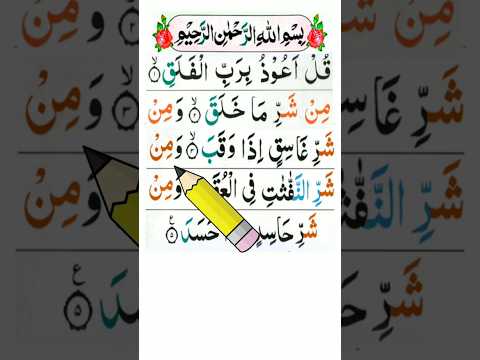 بِسْمِ اللهِ الرَّحْمٰنِ الرَّحِيْمِ
قُلْ اَعُوْذُ بِرَبِّ الْفَلَقِ ۙ‏۝۱
مِنْ شَرِّ مَا خَلَقَ ۙ‏۝۲ وَمِنْ
شَرِّ غَاسِقٍ اِذَا وَقَبَ ۙ‏۝۳ وَمِنْ
شَرِّ النَّفّٰثٰتِ فِى وَمِنْ
شَرِّ حَاسِدٍ حَسَدَ ۝۵ ع